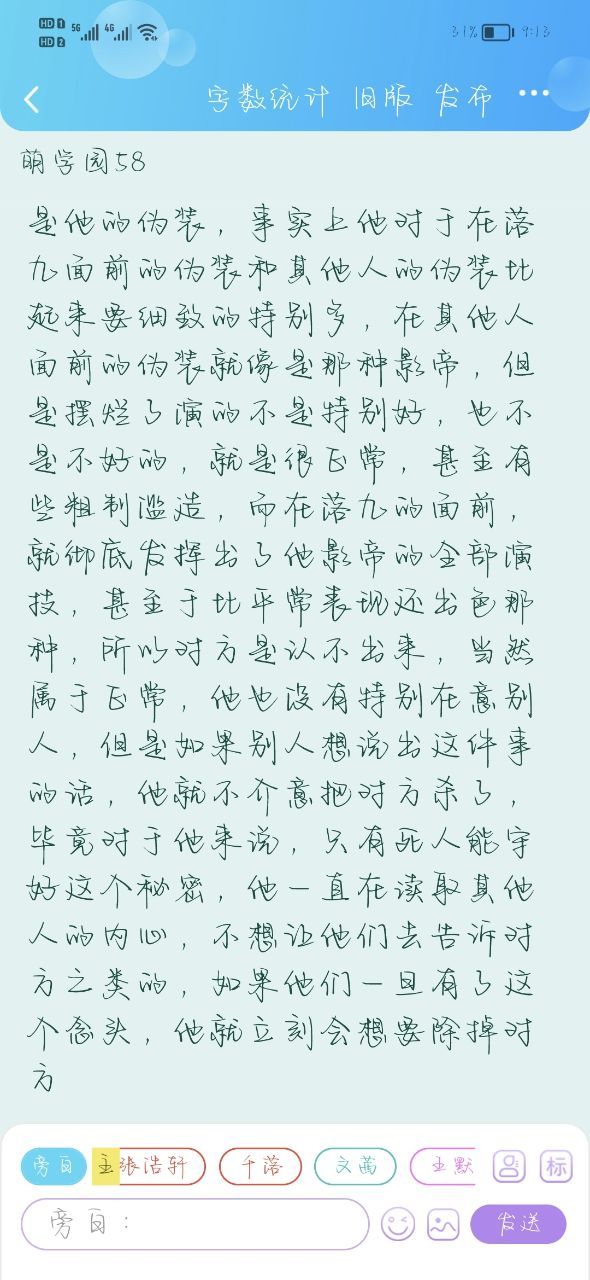 HD 1 5G 4G 31% 9:13
HD 2
字数统计 旧版 发布 ...
萌学园58
是他的伪装，事实上他对于在落
九面前的伪装和其他人的伪装比
起来要细致的特别多，在其他人
面前的伪装就像是那种影帝，但
是摆烂了演的不是特别好，也不
是不好的，就是很正常，甚至有
些粗制滥造，而在落九的面前，
就彻底发挥出了他影帝的全部演
技，甚至于比平常表现还出色那
种，所以对方是认不出来，当然
属于正常，他也没有特别在意别
人，但是如果别人想说出这件事
的话，他就不介意把对方杀了，
毕竟对于他来说，只有死人能守
好这个秘密，他一直在读取其他
人的内心，不想让他们去告诉对
方之类的，如果他们一旦有了这
个念头，他就立刻会想要除掉对
方
旁白 主张浩轩 千落 文茜 王默 标
旁白： 发送